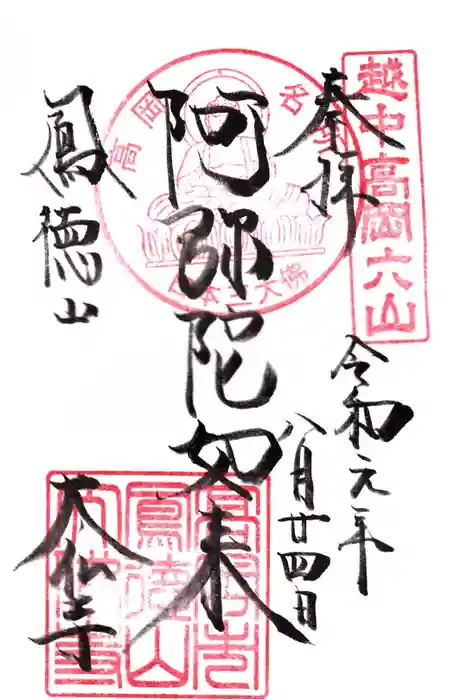 越中高岡六山
奉拝
令和元年
八月廿四日
高岡名
日本三大佛
阿弥陀如来
鳳徳山
大仏寺
鳳徳山